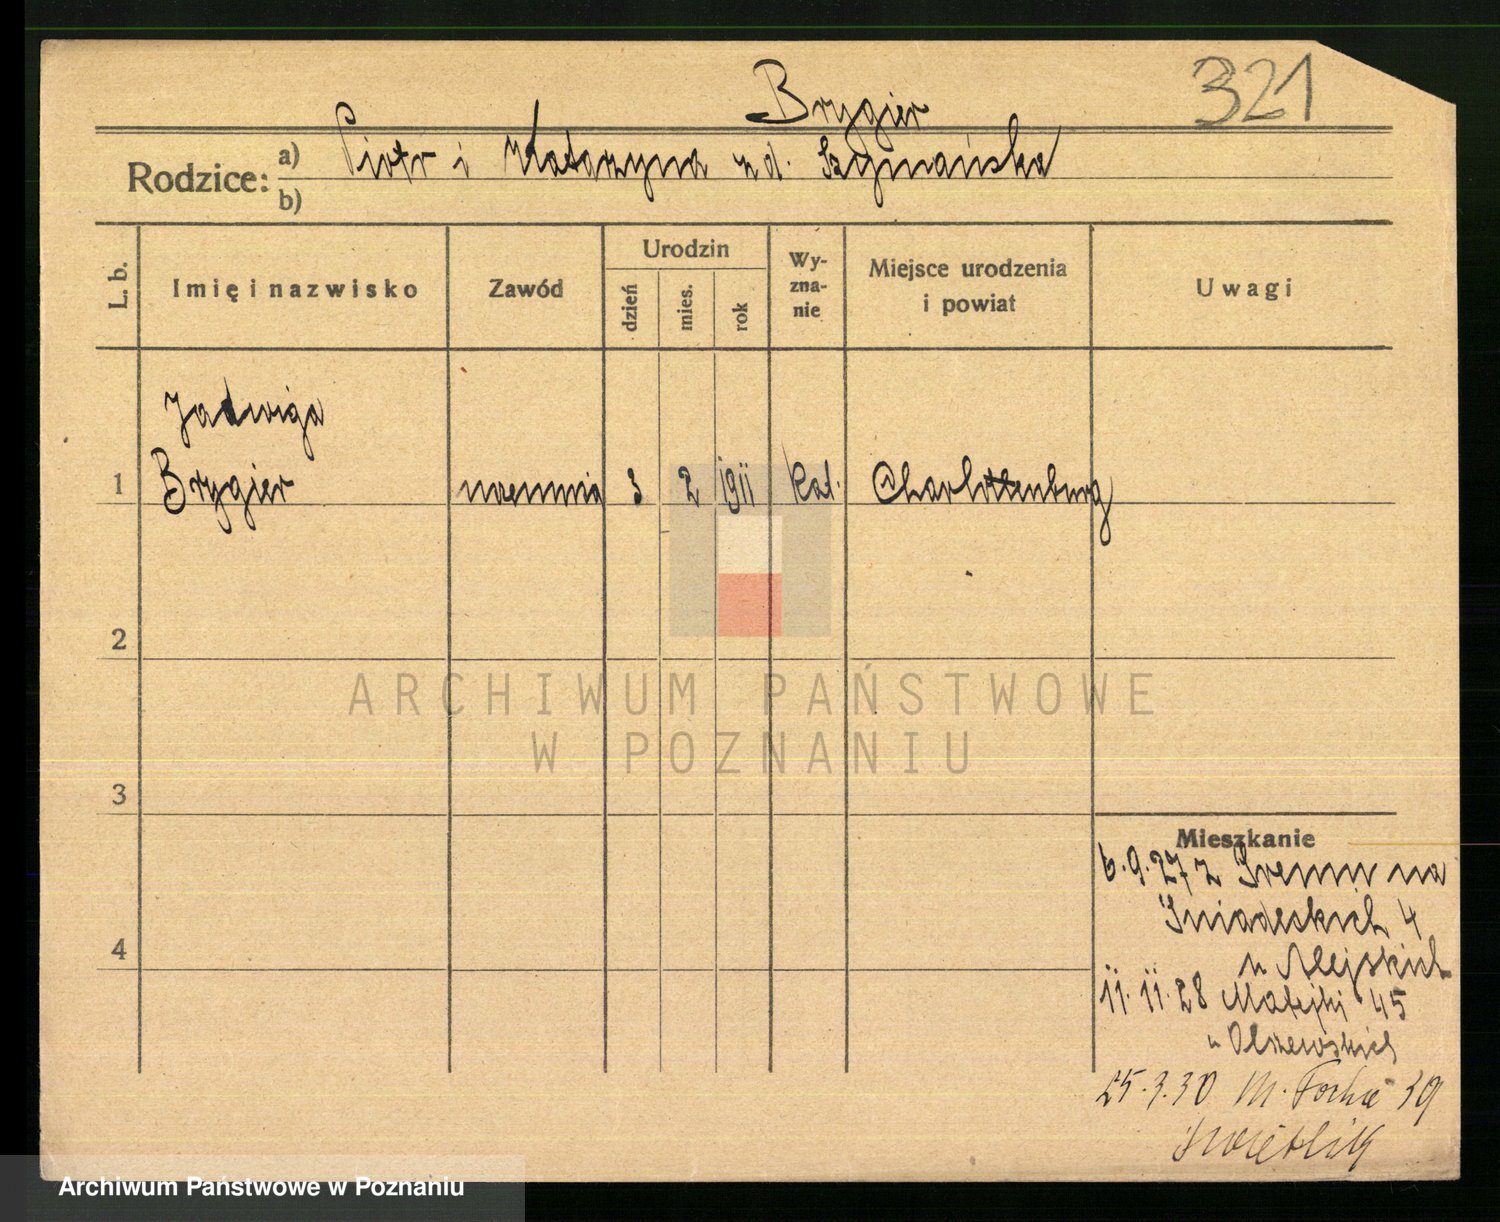 321
Brygier
Rodzice: a) Piotr i Katarzyna z d. Szymańska
b)
L. b. Imię i nazwisko Zawód Urodzin dzień mies. rok Wy-zna-nie Miejsce urodzenia i powiat Uwagi
Jadwiga
1 Brygier uczennica 3 2 1911 kat. Charlottenburg
2
ARCHIWUM PAŃSTWOWE
W POZNANIU
3
Mieszkanie
6.9.27 z Śremu na
Śniadeckich 4
4
u Alejskich
11.11.28 Matejki 45
u Olszewskich
25.3.30 M. Focha 39
Archiwum Państwowe w Poznaniu